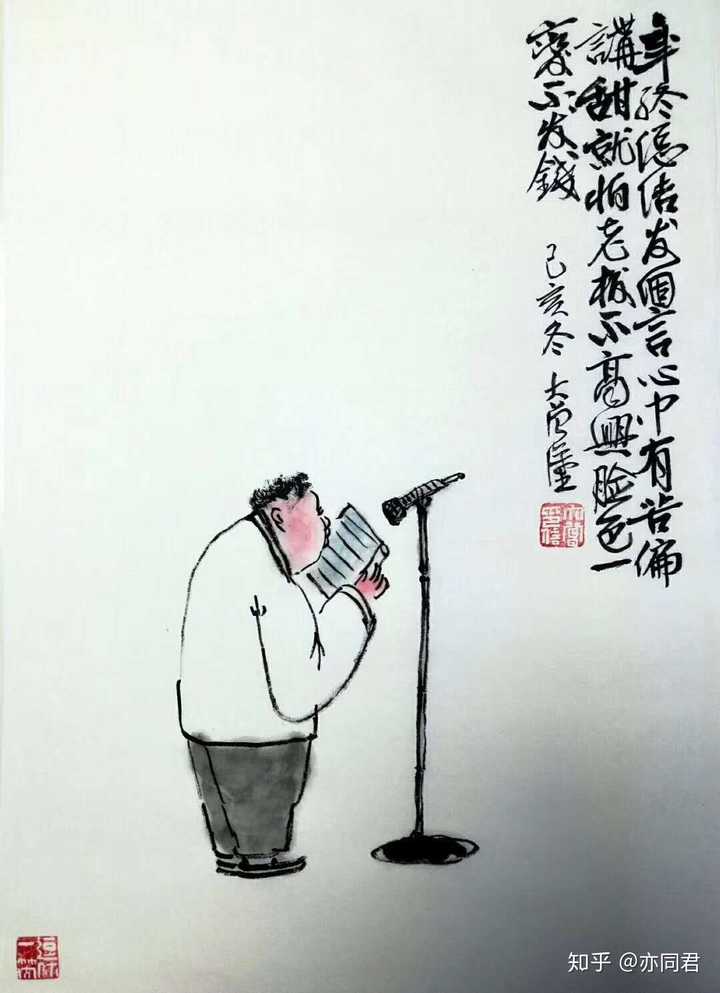 年终總结发個言心中有苦偏
講甜就怕老板不高興脸色一
變不发錢
己亥冬
逗你一笑
知乎 @亦同君